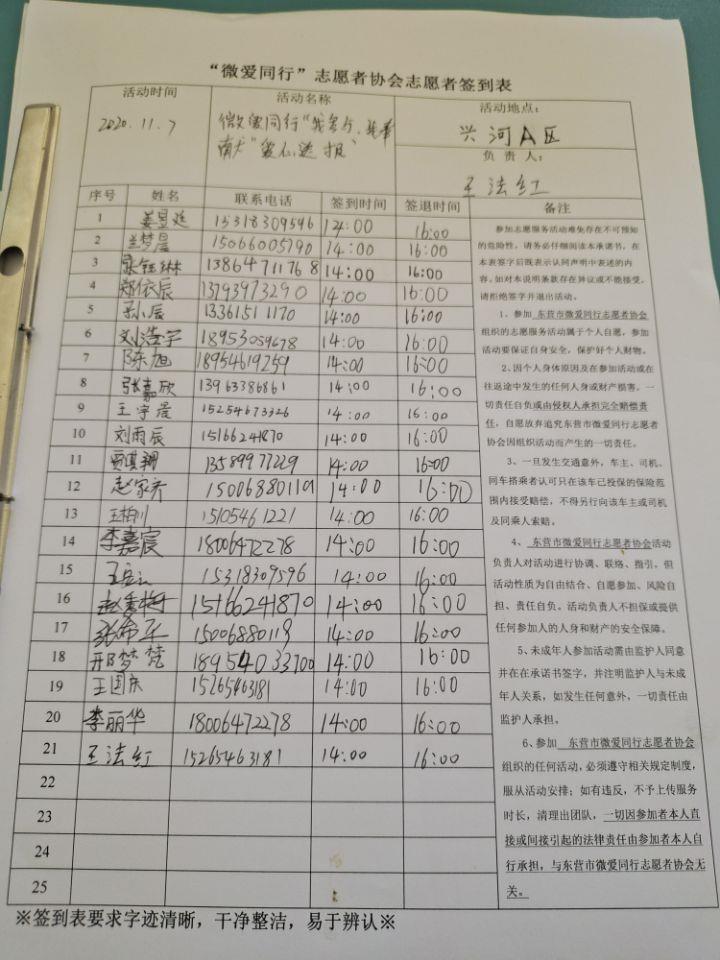 “微爱同行”志愿者协会志愿者签到表
活动时间 活动名称 活动地点：
2020.11.7 微爱同行“我参与、 兴河A区
爱心速报” 负责人：
王法红
序号 姓名 联系电话 签到时间 签退时间 备注
1 姜昱廷 15318309596 14:00 16:00
2 兰梦晨 15066005790 14:00 16:00
3 张钰琳 13864711768 14:00 16:00
4 郑依辰 13793973290 14:00 16:00
5 孙辰 13361511170 14:00 16:00
6 刘浩宇 18953059678 14:00 16:00
7 陈旭 18954619259 14:00 16:00
8 张嘉欣 13963386861 14:00 16:00
9 王宇晨 15254673326 14:00 16:00
10 刘雨辰 15166241870 14:00 16:00
11 贾淇翔 13589977229 14:00 16:00
12 赵家齐 15006880119 14:00 16:00
13 王柏川 15105461221 14:00 16:00
14 李嘉宸 18006472278 14:00 16:00
15 15318309596 14:00 16:00
16 赵秀梅 15166241870 14:00 16:00
17 张希军 15006880119 14:00 16:00
18 邢梦梵 18954033700 14:00 16:00
19 王国庆 15265463181 14:00 16:00
20 李丽华 18006472278 14:00 16:00
21 王法红 15265463181 14:00 16:00
22
23
24
25
参加志愿服务活动难免存在不可预知
的危险性，请务必仔细阅读本承诺书，在
本表签字后既表示认同声明中表述的内
容。如对本说明条款存在异议或不能接受，
请拒绝签字并退出活动。
1、参加 东营市微爱同行志愿者协会
组织的志愿服务活动属于个人自愿，参加
活动要保证自身安全，保护好个人财物。
2、因个人身体原因及在参加活动或在
往返途中发生的任何人身或财产损害，一
切责任自负或由侵权人承担完全赔偿责
任，自愿放弃追究东营市微爱同行志愿者
协会因组织活动而产生的一切责任。
3、一旦发生交通意外，车主、司机、
同车搭乘者认可只在该车已投保的保险范
围内接受赔偿，不得另行向该车主或司机
及同乘人索赔。
4、 东营市微爱同行志愿者协会活动
负责人对活动进行协调、联络、指引，但
活动性质为自由结合、自愿参加、风险自
担、责任自负。活动负责人不担保或提供
任何参加人的人身和财产的安全保障。
5、未成年人参加活动需由监护人同意
并在在承诺书签字，并注明监护人与未成
年人关系，如发生任何意外，一切责任由
监护人承担。
6、参加 东营市微爱同行志愿者协会
组织的任何活动，必须遵守相关规定制度，
服从活动安排；如有违反，不予上传服务
时长，清理出团队，一切因参加者本人直
接或间接引起的法律责任由参加者本人自
行承担，与东营市微爱同行志愿者协会无
关。
※签到表要求字迹清晰，干净整洁，易于辨认※